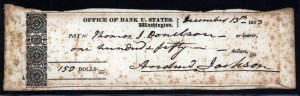 OFFICE OF BANK U. STATES,
Washington, December 15th 1833
PAY TO Thomas J. Donelson or bearer,
one hundred & fifty dollars,
150 DOLLS.
Andrew Jackson